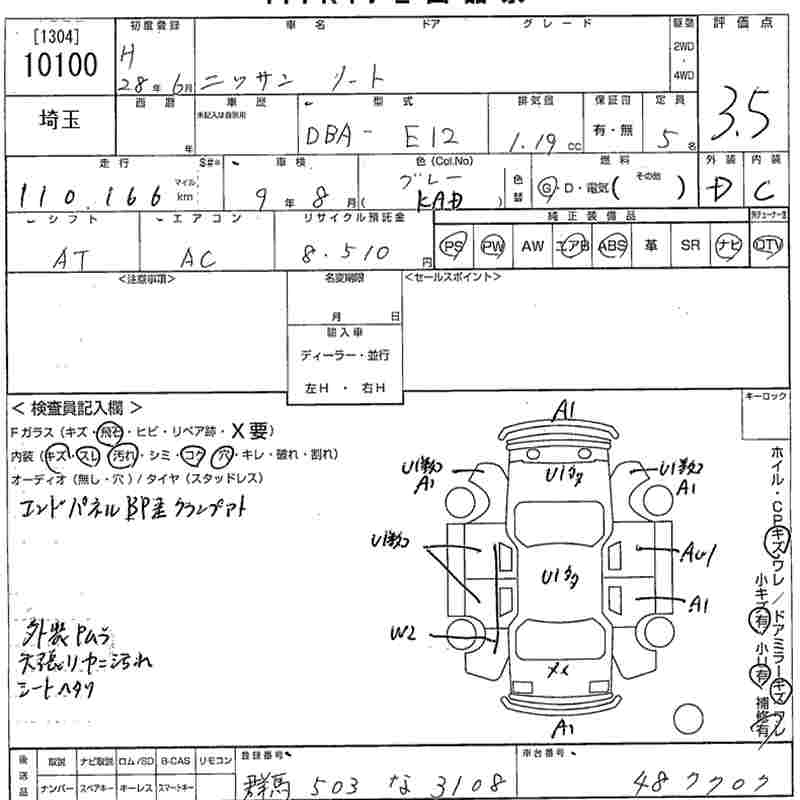 [1304]
10100
初度登録 車名 ドア グレード 駆動 評価点
H 28年 6月 ニッサン ノート 2WD ・ 4WD 3.5
埼玉
西暦 車歴 型式 排気図 保証書 定員
年 未記入は自家用 DBA- E12 1.19 cc 有・無 5名
走行 S#= 車検 色(Col.No) 燃料 外装 内装
110,166 マイル km 9年 8月 ( グレー KAD ) 色替 G・D・電気( その他 ) D C
シフト エアコン リサイクル預託金 純正装備品
AT AC 8,510円 PS PW AW エアB ABS 革 SR ナビ DTV
<注意事項> 名変期限 <セールスポイント>
月 日
輸入車
ディーラー・並行
左H ・ 右H
キーロック
< 検査員記入欄 >
Fガラス(キズ・飛石・ヒビ・リペア跡・X要)
内装(キズ・スレ・汚れ・シミ・コゲ・穴・キレ・破れ・割れ)
オーディオ(無し・穴)/タイヤ(スタッドレス)
エンドパネルBP歪クランプアト
外装Pムラ
天張りヤニ汚れ
シートヘタリ
A1
U1数 A1
U1多
U1数 A1
U1数
U1多
AU1
A1
W2
メイ
A1
ホイル・CPキズワレ/ドアミラーキズワレ
小キズ有 小U有 補修有
後送品 取説 ナビ取説 ロム/SD B-CAS リモコン 登録番号 車台番号
ナンバー スペアキー キーレス スマートキー 群馬 503 な 3108 487707